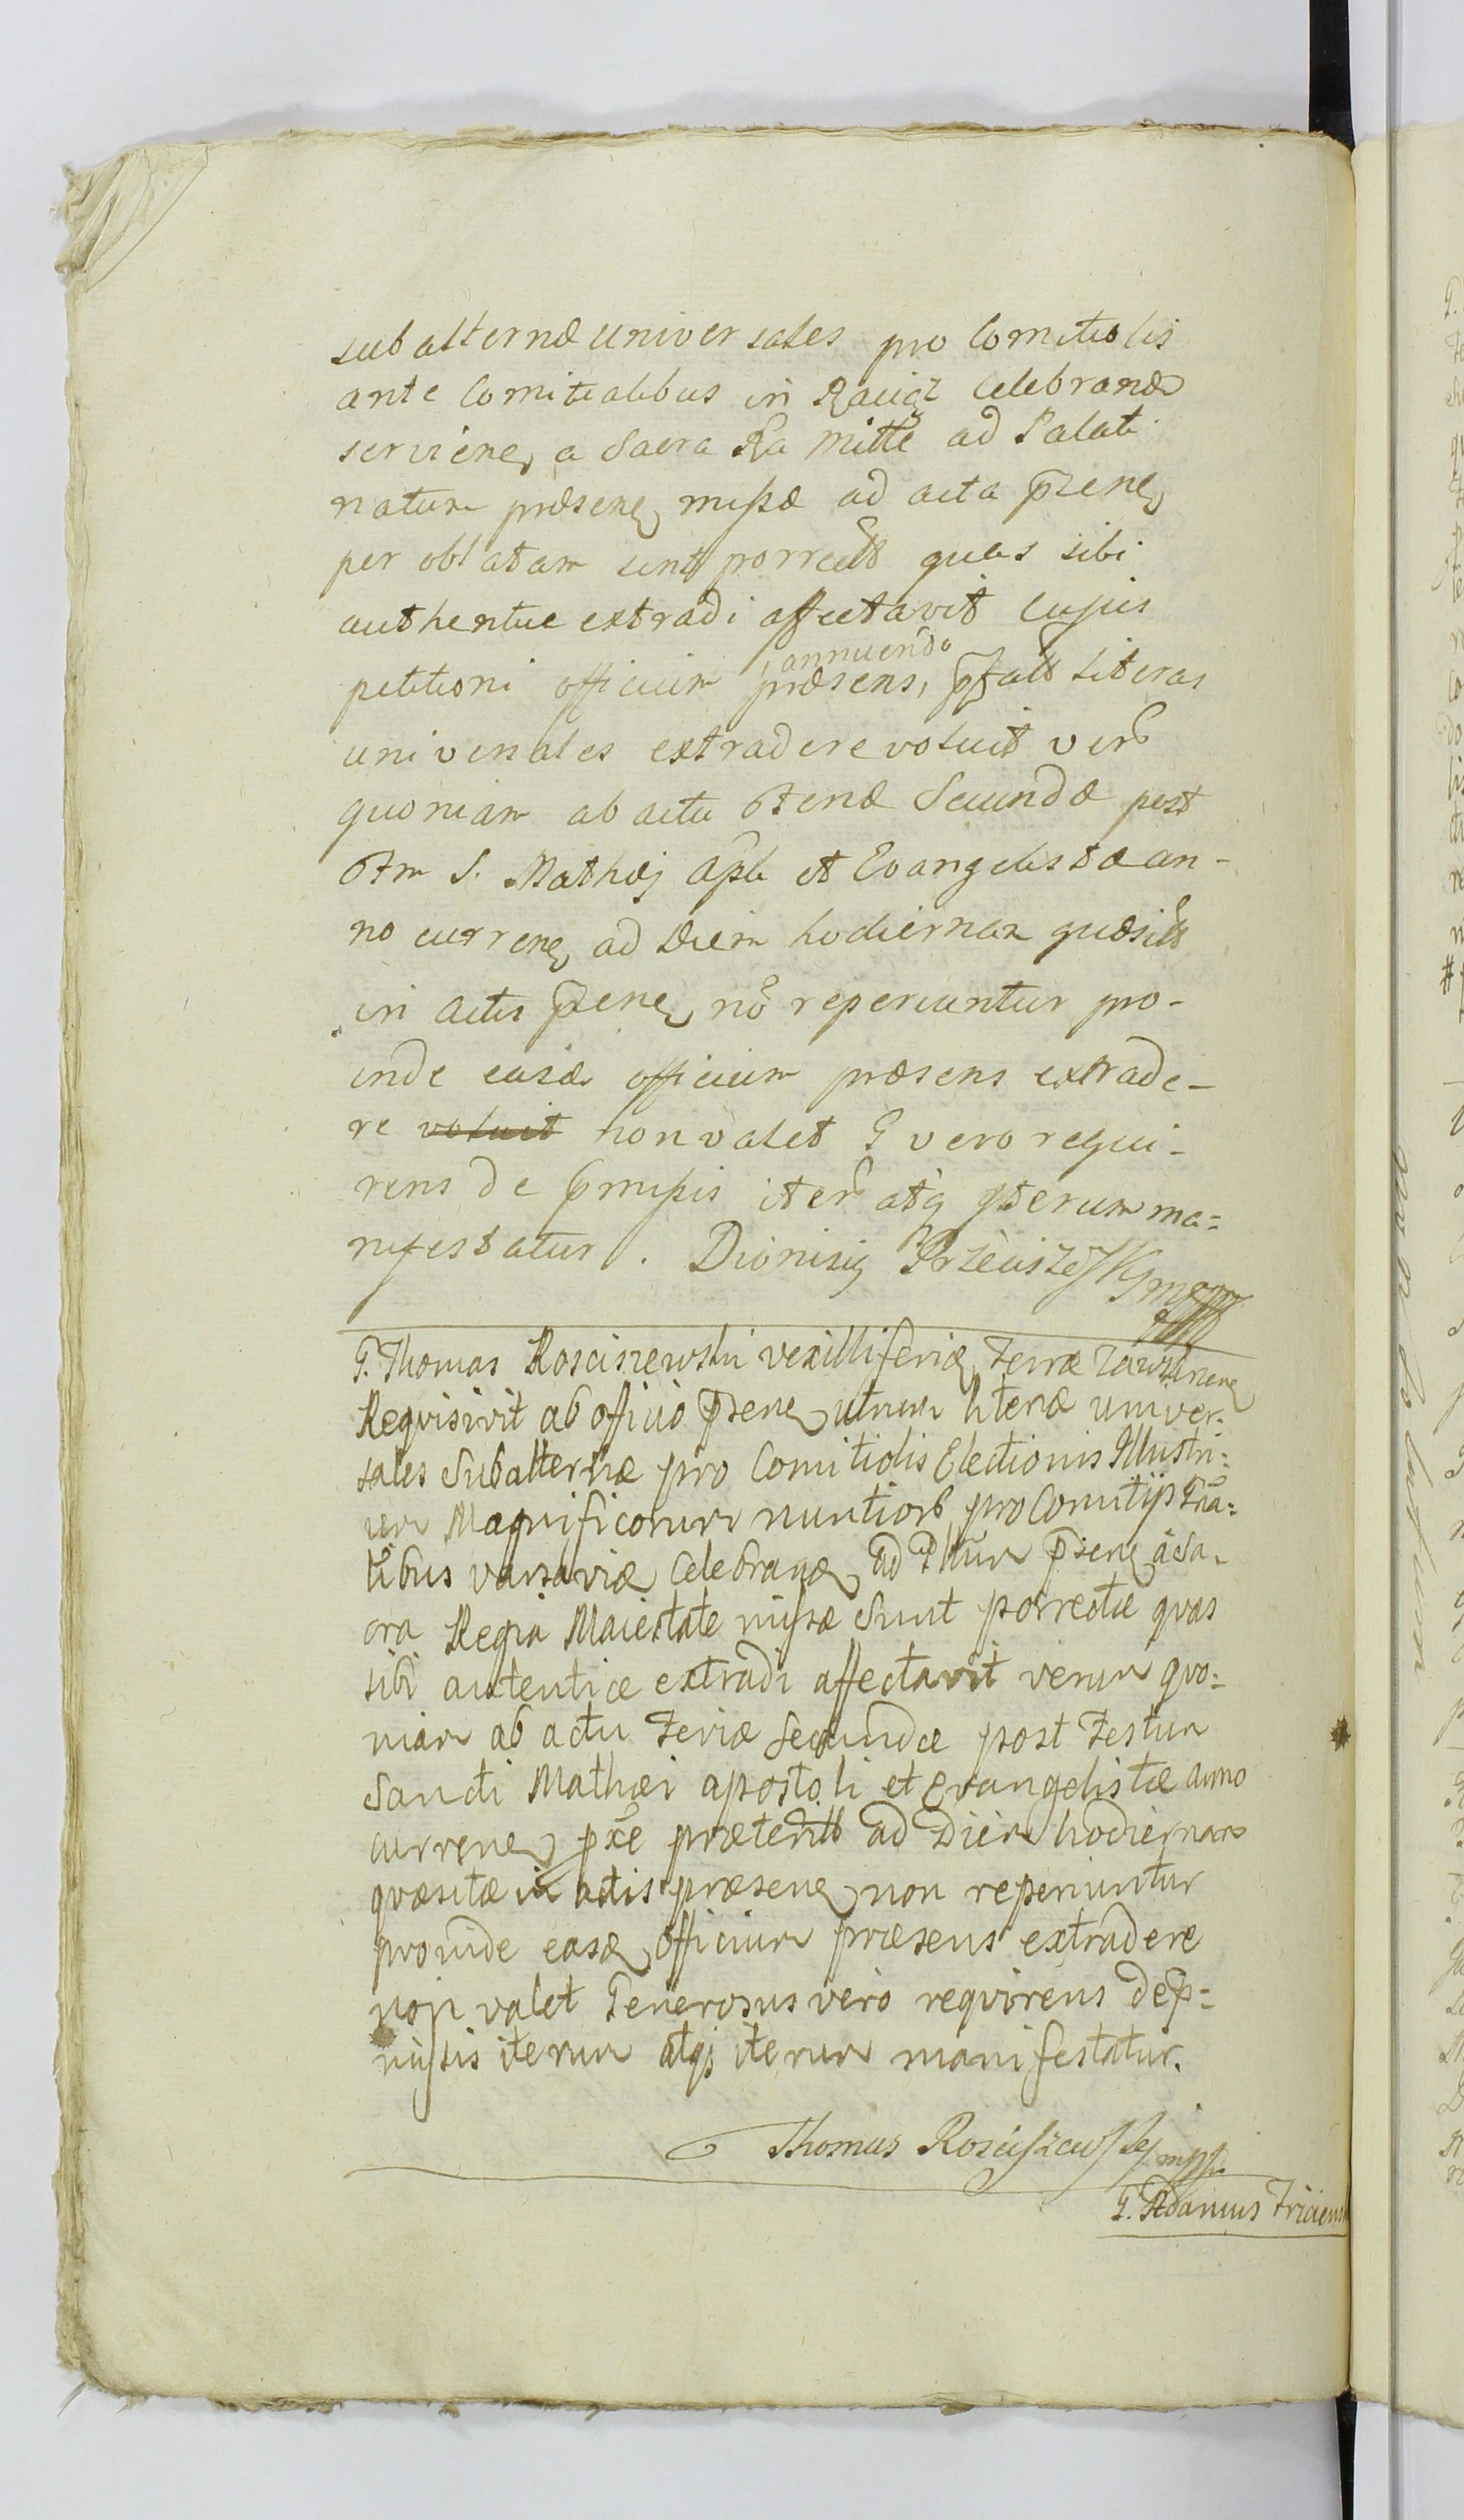 subalternæ universales pro Comitiolis
ante Comitialibus in Raciąż Celebrand
servienę a Sacra Ra Mitte ad Palati
natum præsenę missæ ad acta pzenę
per oblatam sint porrectæ quas sibi
authentice extradi affectavit cujus
annuendo
petitioni officium præsens, literas
universales extradere voluit verũ
quoniam ab actu Feriæ Secundæ post
Ftm S. Mathæj Apli et Evangelistæ an-
no currenę ad Diem hodiernam quæsitæ
in Actis pzenę nõ reperiuntur pro-
inde easdę officium præsens extrade-
re voluit non valet G vero requi-
rens de præmissis iterũ atq iterum ma=
nifestatur. Dionisig Przeciszewsky mpp
G. Thomas Rosciszewski vexilliferidę terræ Zawskrnenę
Requisivit ab officio pzenę utrum literæ univer-
sales Subalternæ pro Comitiolis Electionis Illustri=
um Magnificorum nuntiorũ pro Comitijs Gña=
libus varsaviæ Celebranę ad Pltũm pzenę a Sa-
cra Regia Maiestate missæ Sunt porrectæ quas
sibi autenticæ extradi affectavit verum quo=
niam ab actu Feriæ Secundæ post Festum
Sancti Mathæi apostoli et Evangelistæ anno
currenę pxe præteritæ ad Diem hodiernam
quæsitæ in actis præsenę non reperiuntur
proinde easdę officium præsens extradere
non valet Generosus vero requirens de p=
missis iterum atqj iterum manifestatur.
Thomas Roscissewsky mpp
G. Adamus